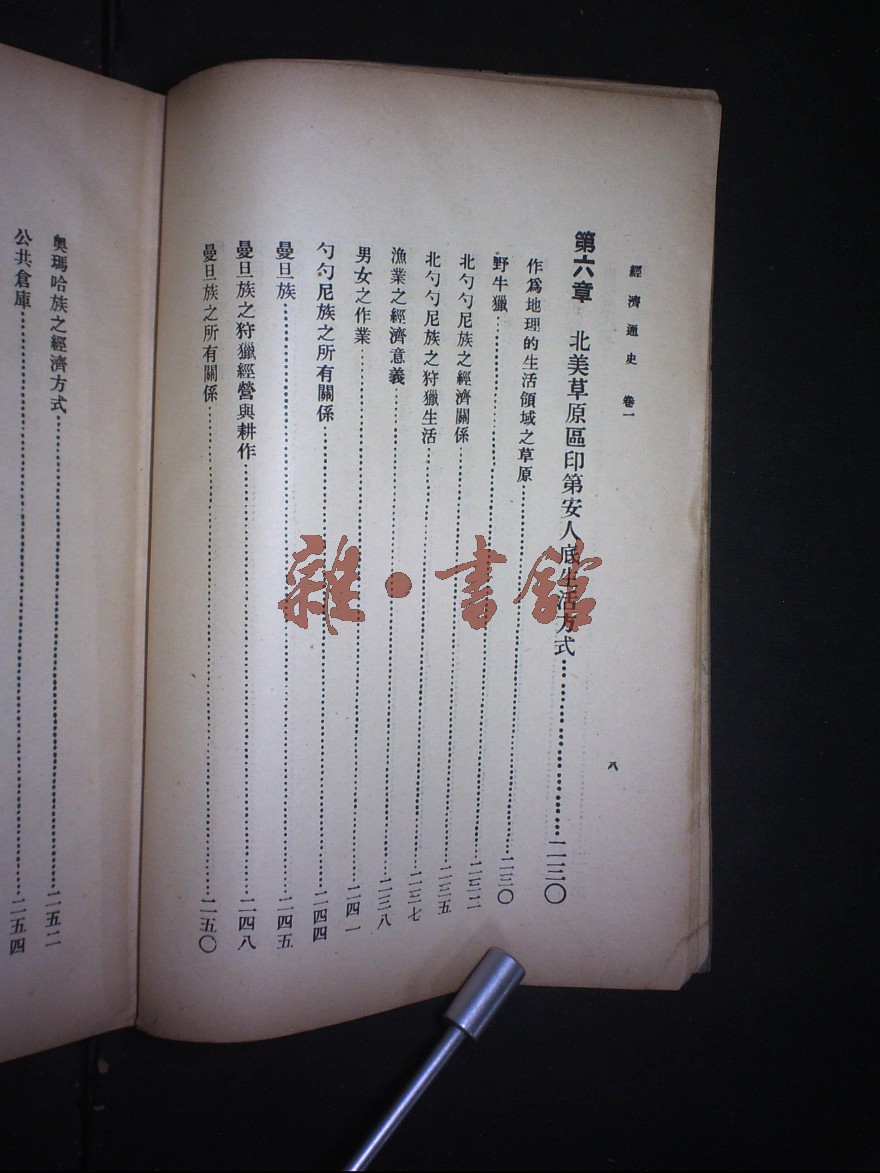 經濟通史 卷一
八
第六章 北美草原區印第安人底生活方式……………………二三〇
作爲地理的生活領域之草原……………………二三〇
野牛獵……………………二三二
北勺勺尼族之經濟關係……………………二三五
北勺勺尼族之狩獵生活……………………二三七
漁業之經濟意義……………………二三八
男女之作業……………………二四一
勺勺尼族之所有關係……………………二四四
曼旦族……………………二四五
曼旦族之狩獵經營與耕作……………………二四八
曼旦族之所有關係……………………二五〇
奧瑪哈族之經濟方式……………………二五二
公共倉庫……………………二五四
雜·書館